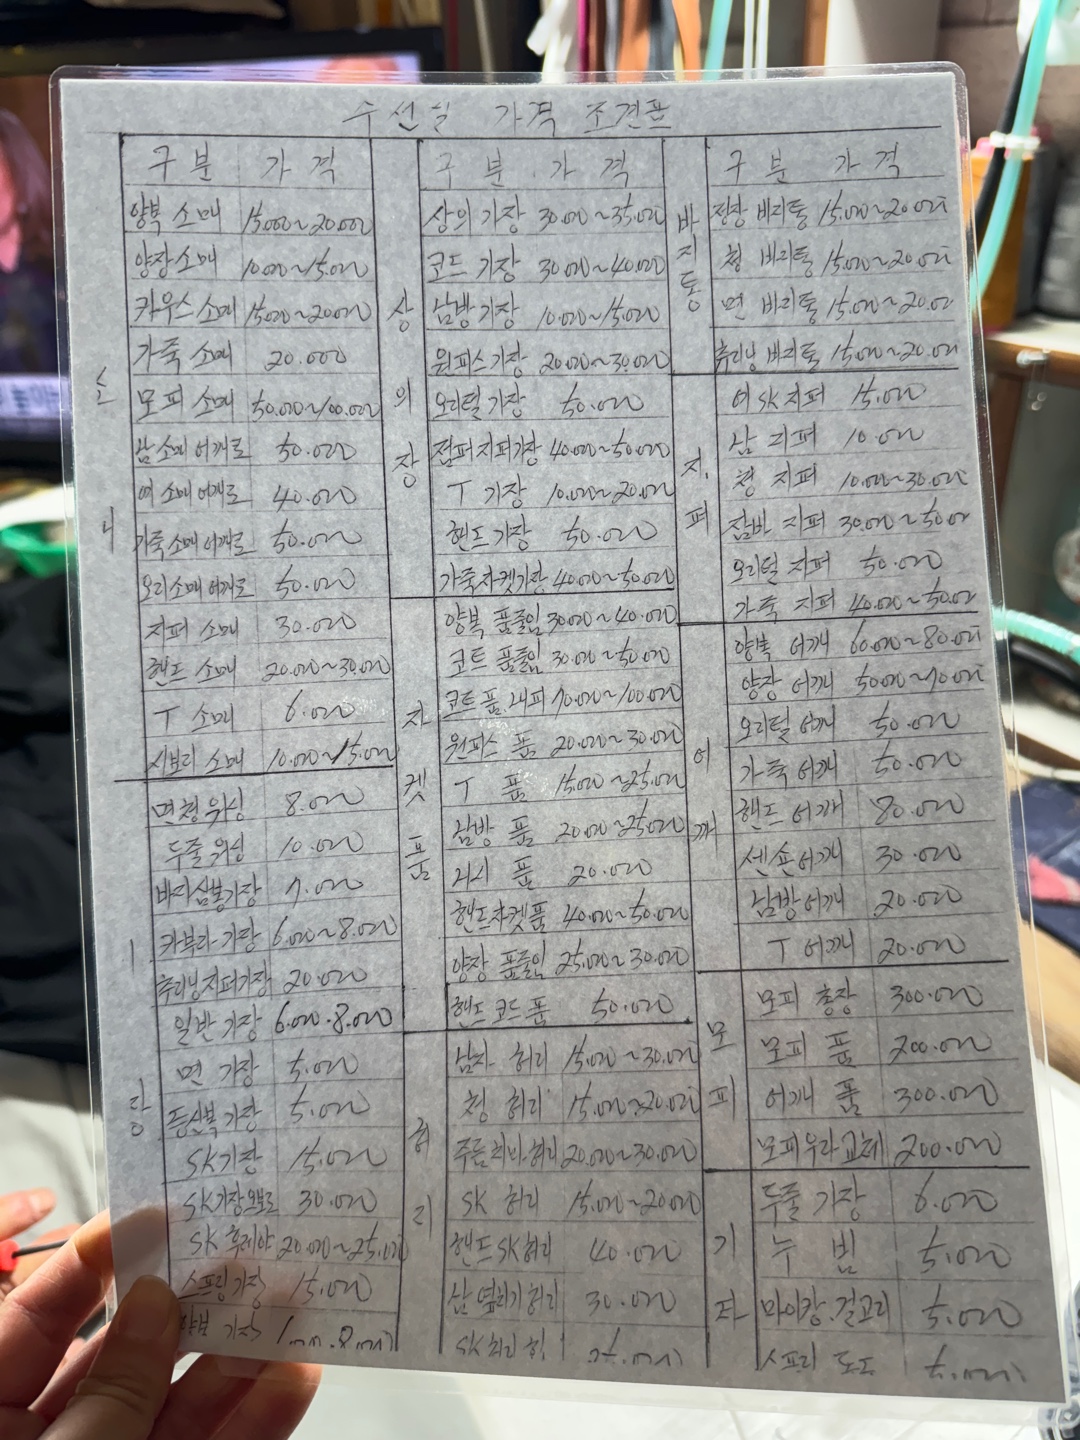 수선실 가격 조견표
구분 가격
소매
양복 소매 15.000~20.000
양장 소매 10.000~15.000
카우스 소매 15.000~20.000
가죽 소매 20.000
모피 소매 50.000~100.000
남 소매 어깨로 50.000
여 소매 어깨로 40.000
가죽 소매 어깨로 50.000
오리 소매 어깨로 50.000
지퍼 소매 30.000
핸드 소매 20.000~30.000
T 소매 6.000
시보리 소매 10.000~15.000
기장
면청 워싱 8.000
두줄 워싱 10.000
바지삼봉기장 7.000
카부라 기장 6.000~8.000
츄리닝 지퍼기장 20.000
일반 기장 6.000.8.000
면 기장 5.000
등산복 기장 5.000
SK기장 15.000
SK기장 30.000
SK 후레아 20.000~25.000
스프링 기장 15.000
기장 8.000
구분 가격
상의장
상의 기장 30.000~35.000
코드 기장 30.000~40.000
남방 기장 10.000~15.000
원피스 기장 20.000~30.000
오리털 기장 50.000
점퍼지퍼기장 40.000~50.000
T 기장 10.000~20.000
핸드 기장 50.000
가죽자켓기장 40.000~50.000
자켓품
양복 품줄임 30.000~40.000
코트 품줄임 30.000~50.000
코트 품.내피 70.000~100.000
원피스 품 20.000~30.000
T 품 15.000~25.000
남방 품 20.000~25.000
나시 품 20.000
핸드자켓품 40.000~50.000
양장 품줄임 25.000~30.000
핸드 코드품 50.000
허리
남자 허리 15.000~30.000
청 허리 15.000~20.000
주름치마허리 20.000~30.000
SK 허리 15.000~20.000
핸드 SK허리 40.000
남 옆트기허리 30.000
SK허리
구분 가격
바지통
정장 바지통 15.000~20.000
청 바지통 15.000~20.000
면 바지통 15.000~20.000
츄리닝 바지통 15.000~20.000
지.퍼
여SK지퍼 15.000
남 지퍼 10.000
청 지퍼 10.000~30.000
잠바 지퍼 30.000~50.000
오리털 지퍼 50.000
가죽 지퍼 40.000~50.000
어깨
양복 어깨 60.000~80.000
양장 어깨 50.000~70.000
오리털 어깨 50.000
가죽 어깨 50.000
핸드 어깨 80.000
센숀어깨 30.000
남방어깨 20.000
T 어깨 20.000
모피
모피 총장 300.000
모피 품 200.000
어깨 품 300.000
모피우라교체 200.000
기타
두줄 기장 6.000
누빔 5.000
마이깡.걸고리 5.000
5.000